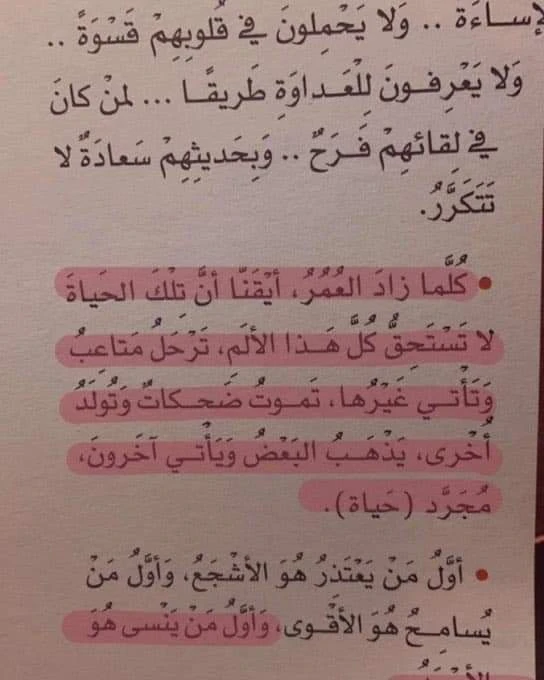 لإساءَة .. وَلا يَحْمِلونَ في قُلوبِهِمْ قَسْوَةً ..
وَلا يَعْرِفونَ لِلْعَداوَةِ طَريقًا ... لمنْ كانَ
في لِقائهِمْ فَرَحٌ .. وَبِحَديثِهِمْ سَعادَةٌ لا
تَتَكَرَّرُ.
• كُلَّما زادَ العُمُرُ، أيْقَنّا أنَّ تِلْكَ الحَياةَ
لا تَسْتَحِقُّ كُلَّ هَذا الألَمِ، تَرْحَلُ مَتاعِبُ
وَتَأْتي غَيْرُها، تَموتُ ضَحِكاتٌ وَتُولَدُ
أُخْرى، يَذْهَبُ البَعْضُ وَيَأْتي آخَرونَ،
مُجَرَّد (حَياة).
• أوَّلُ مَنْ يَعْتَذِرُ هُوَ الأشْجَعُ، وَأوَّلُ مَنْ
يُسامِحُ هُوَ الأقْوى، وَأوَّلُ مَنْ يَنْسى هُوَ